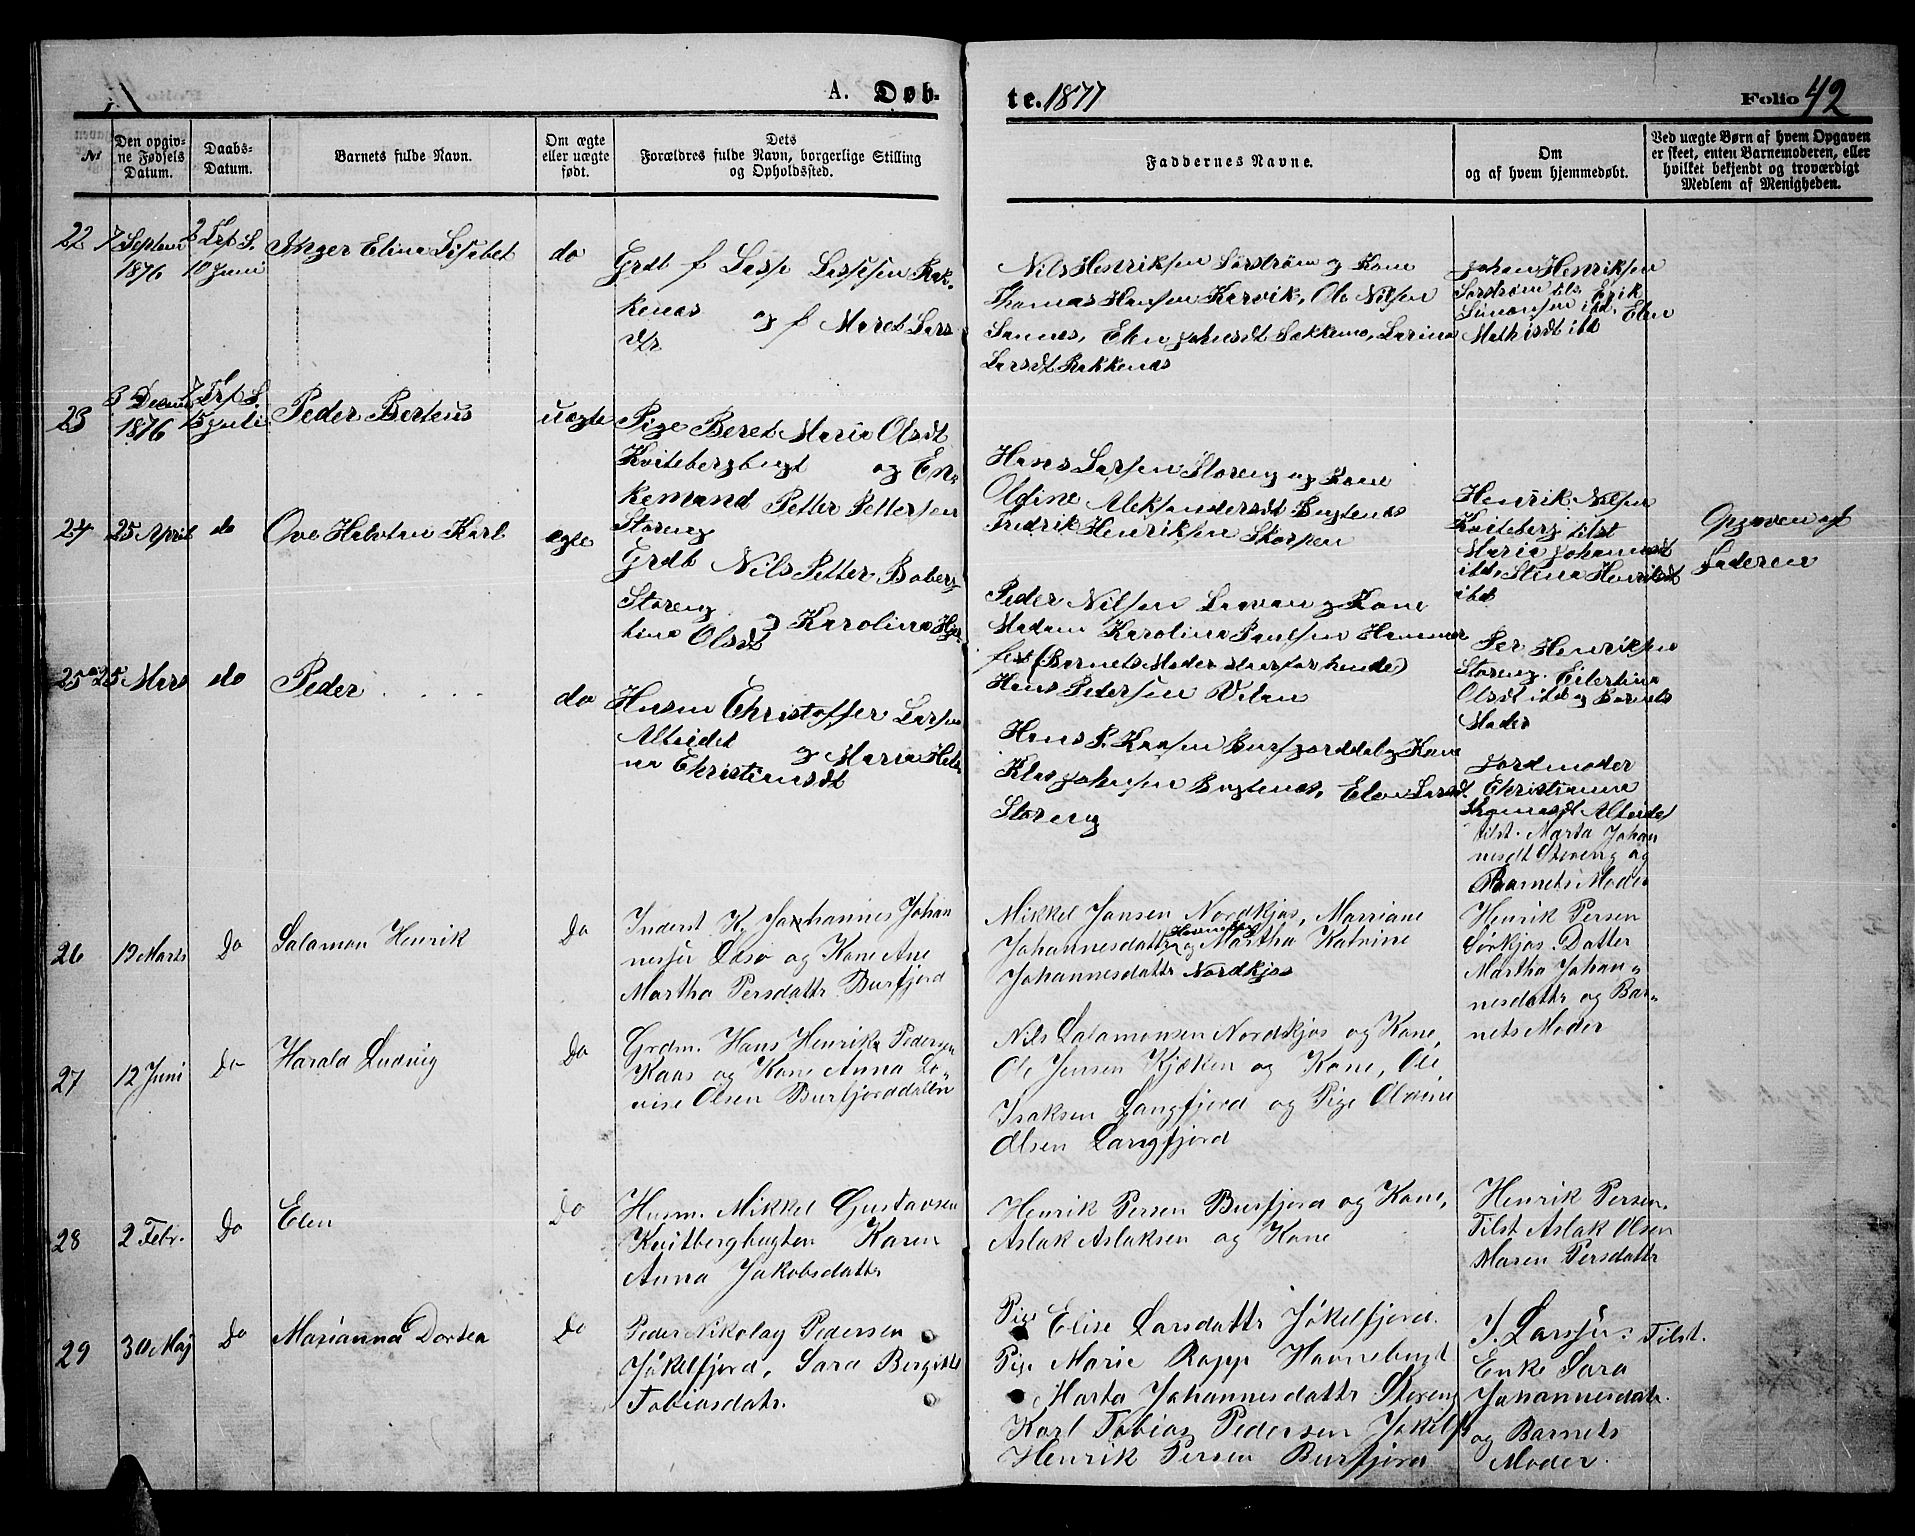 A. Døb-
te. 1877
Folio 42
№
Den opgiv-
ne Fødsels
Datum.
Daabs-
Datum.
Barnets fulde Navn.
Om ægte
eller uægte
født.
Dets
Forældres fulde Navn, borgerlige Stilling
og Opholdssted.
Faddernes Navne.
Om
og af hvem hjemmedøbt.
Ved uægte Børn af hvem Opgaven
er skeet, enten Barnemoderen, eller
hvilket bekjendt og troværdigt
Medlem af Menigheden.
22
7 Septem
1876
2 Trf S.
10 Juni
Anger Elina Lisabet
do
Grdb f Lasse Lassesen Rak-
kenes og f Maret Lars
dtr
Nils Henriksen Sørstrøm og Kone
Thomas Hansen Karvik, Ole Nilsen
Sannes, Elen Johnsdt Lakkeno, Larina
Larsdt Rakkenes
Johan Henriksen
Sørstrøm tils. Erik
Simonsen ibd. Elen
Mathisdt ibd
23
3 Decem
1876
7 Trf S.
15 Juli
Peder Berteus
uægte
Pige Beret Maria Olsdt
Kvitebergbugt og En-
kemand Petter Pettersen
Storeng
Hans Larsen Storeng og Kone
Olgine Aleksandersdt Bugtenes
Fredrik Henriksen Skorpen
Henrik Nilsen
Kviteberg tilst
Maria Johannsdt
ibd, Stina Henriksdt
ibd.
Opgaven af
Faderen
24
25 April
do
Ove Halvtan Karl
ægte
Grdb Nils Petter Boberg
Storeng og Karolina Hjer
tina Olsdt
Peder Nilsen Lavan og Kone
Madam Karolina Paulsen Hammer
fest (Barnets Moder staar for hende)
Hans Pedersen Vilan
Per Henriksen
Storeng. Eilertina
Olsdt ibd og Barnets
Moder
25
25 Mars
do
Peder
do
Husm Christoffer Larsen
Alteidet og Maria Hele
na Christiansdt
Hans P. Kaasen Burfjorddal og Kone
Klas Johnsen Bugtenes, Elen Larsdt
Storeng
Jordmoder
Christianne
Thomasdt Alteidet
tilst. Marta Johan
nesdt Storeng og
Barnets Moder
26
19 Marts
Do
Salamon Henrik
Do
Inderst Kv Johannes Johan
nesen Oksø og Kone Ane
Martha Persdattr Burfjord
Mikkel Jansen Nordkjos, Marriane
Johannesdattr og Martha Katrine
Johannesdattr Nordkjos
Henrik Persen
Sørkjos. Datter
Martha Johan-
nesdattr og Bar-
nets Moder
27
12 Juni
Do
Harald Ludvig
Do
Grdm. Hans Henrik Pedersen
Kaas og Kone Anna Lo-
vise Olsen Burfjorddalen
Nils Salamonsen Nordkjos og Kone,
Ole Jensen Kjæken og Kone, Ole
Isaksen Langfjord og Pige Olevine
Olsen Langfjord
28
2 Febr.
Do
Elen
Do
Husm. Mikkel Gustavsen
Kvitbergbugten Karen
Anna Jakobsdattr
Henrik Persen Burfjord og Kone,
Aslak Aslaksen og Kone
Henrik Persen
Tilst Aslak Olsen
Maren Persdattr
29
30 Maj
Do
Marianna Dortea
Do
Peder Nikolay Pedersen
Jøkelfjord, Sara Bergitte
Tobiasdatr.
Pige Elise Larsdattr Jøkelfjord.
Pige Marie Rapp Havnebugt
Marta Johannesdattr Storeng
Karl Tobias Pedersen Jøkelfj
Henrik Persen Burfjord
J. Larsen: Tilst.
Enke Sara
Johannesdatr.
og Barnets
Moder.